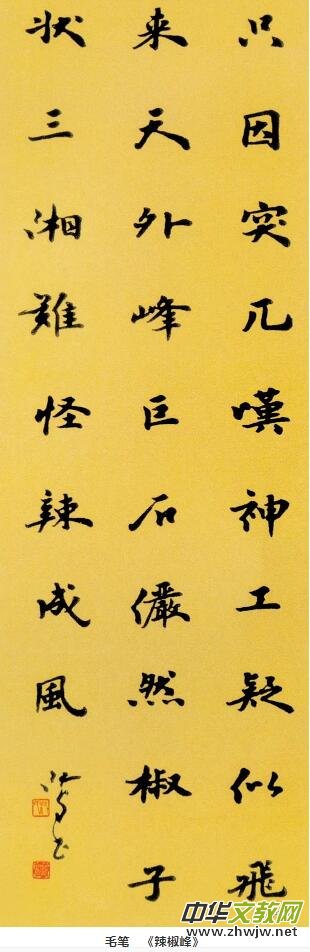 只因突兀嘆神工疑似飛
来天外峰巨石儼然椒子
状三湘難怪辣成風
中华文教网
www.zhwjw.net
毛笔 《辣椒峰》